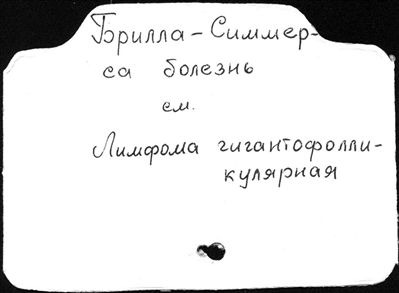 Брилла-Симмер-
са болезнь
см.
Лимфома гигантофолли-
кулярная